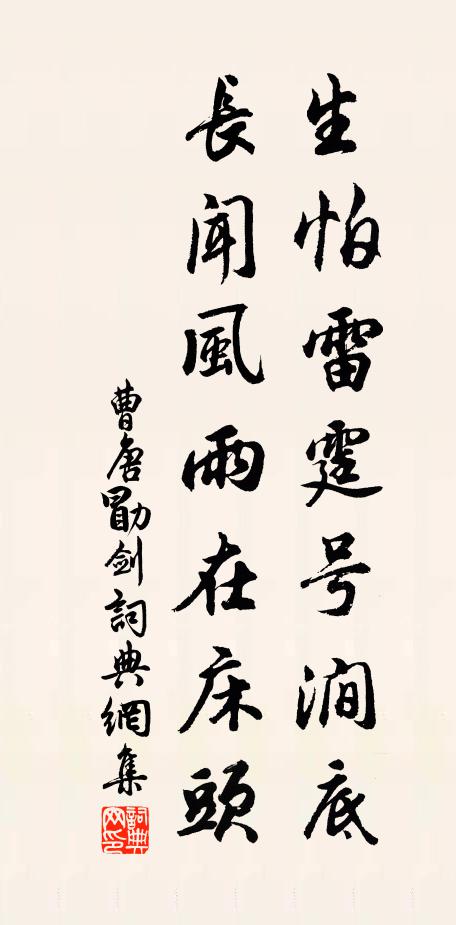 生怕雷霆号澗底
長聞風雨在床頭
曹唐勖剑詞典網集
詞典